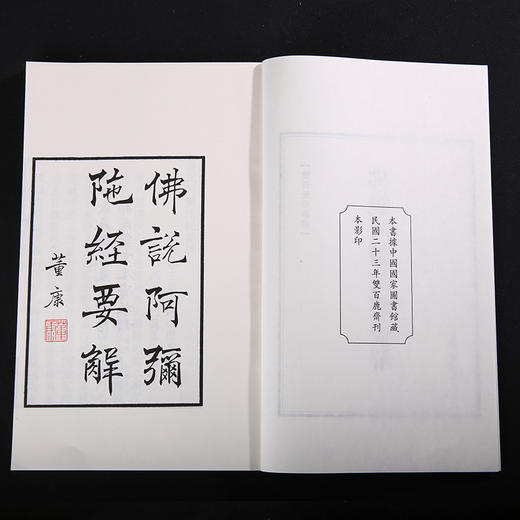 本書據中國國家圖書館藏
民國二十三年雙百鹿齋刊
本影印
佛說阿彌
陁經要解
董康